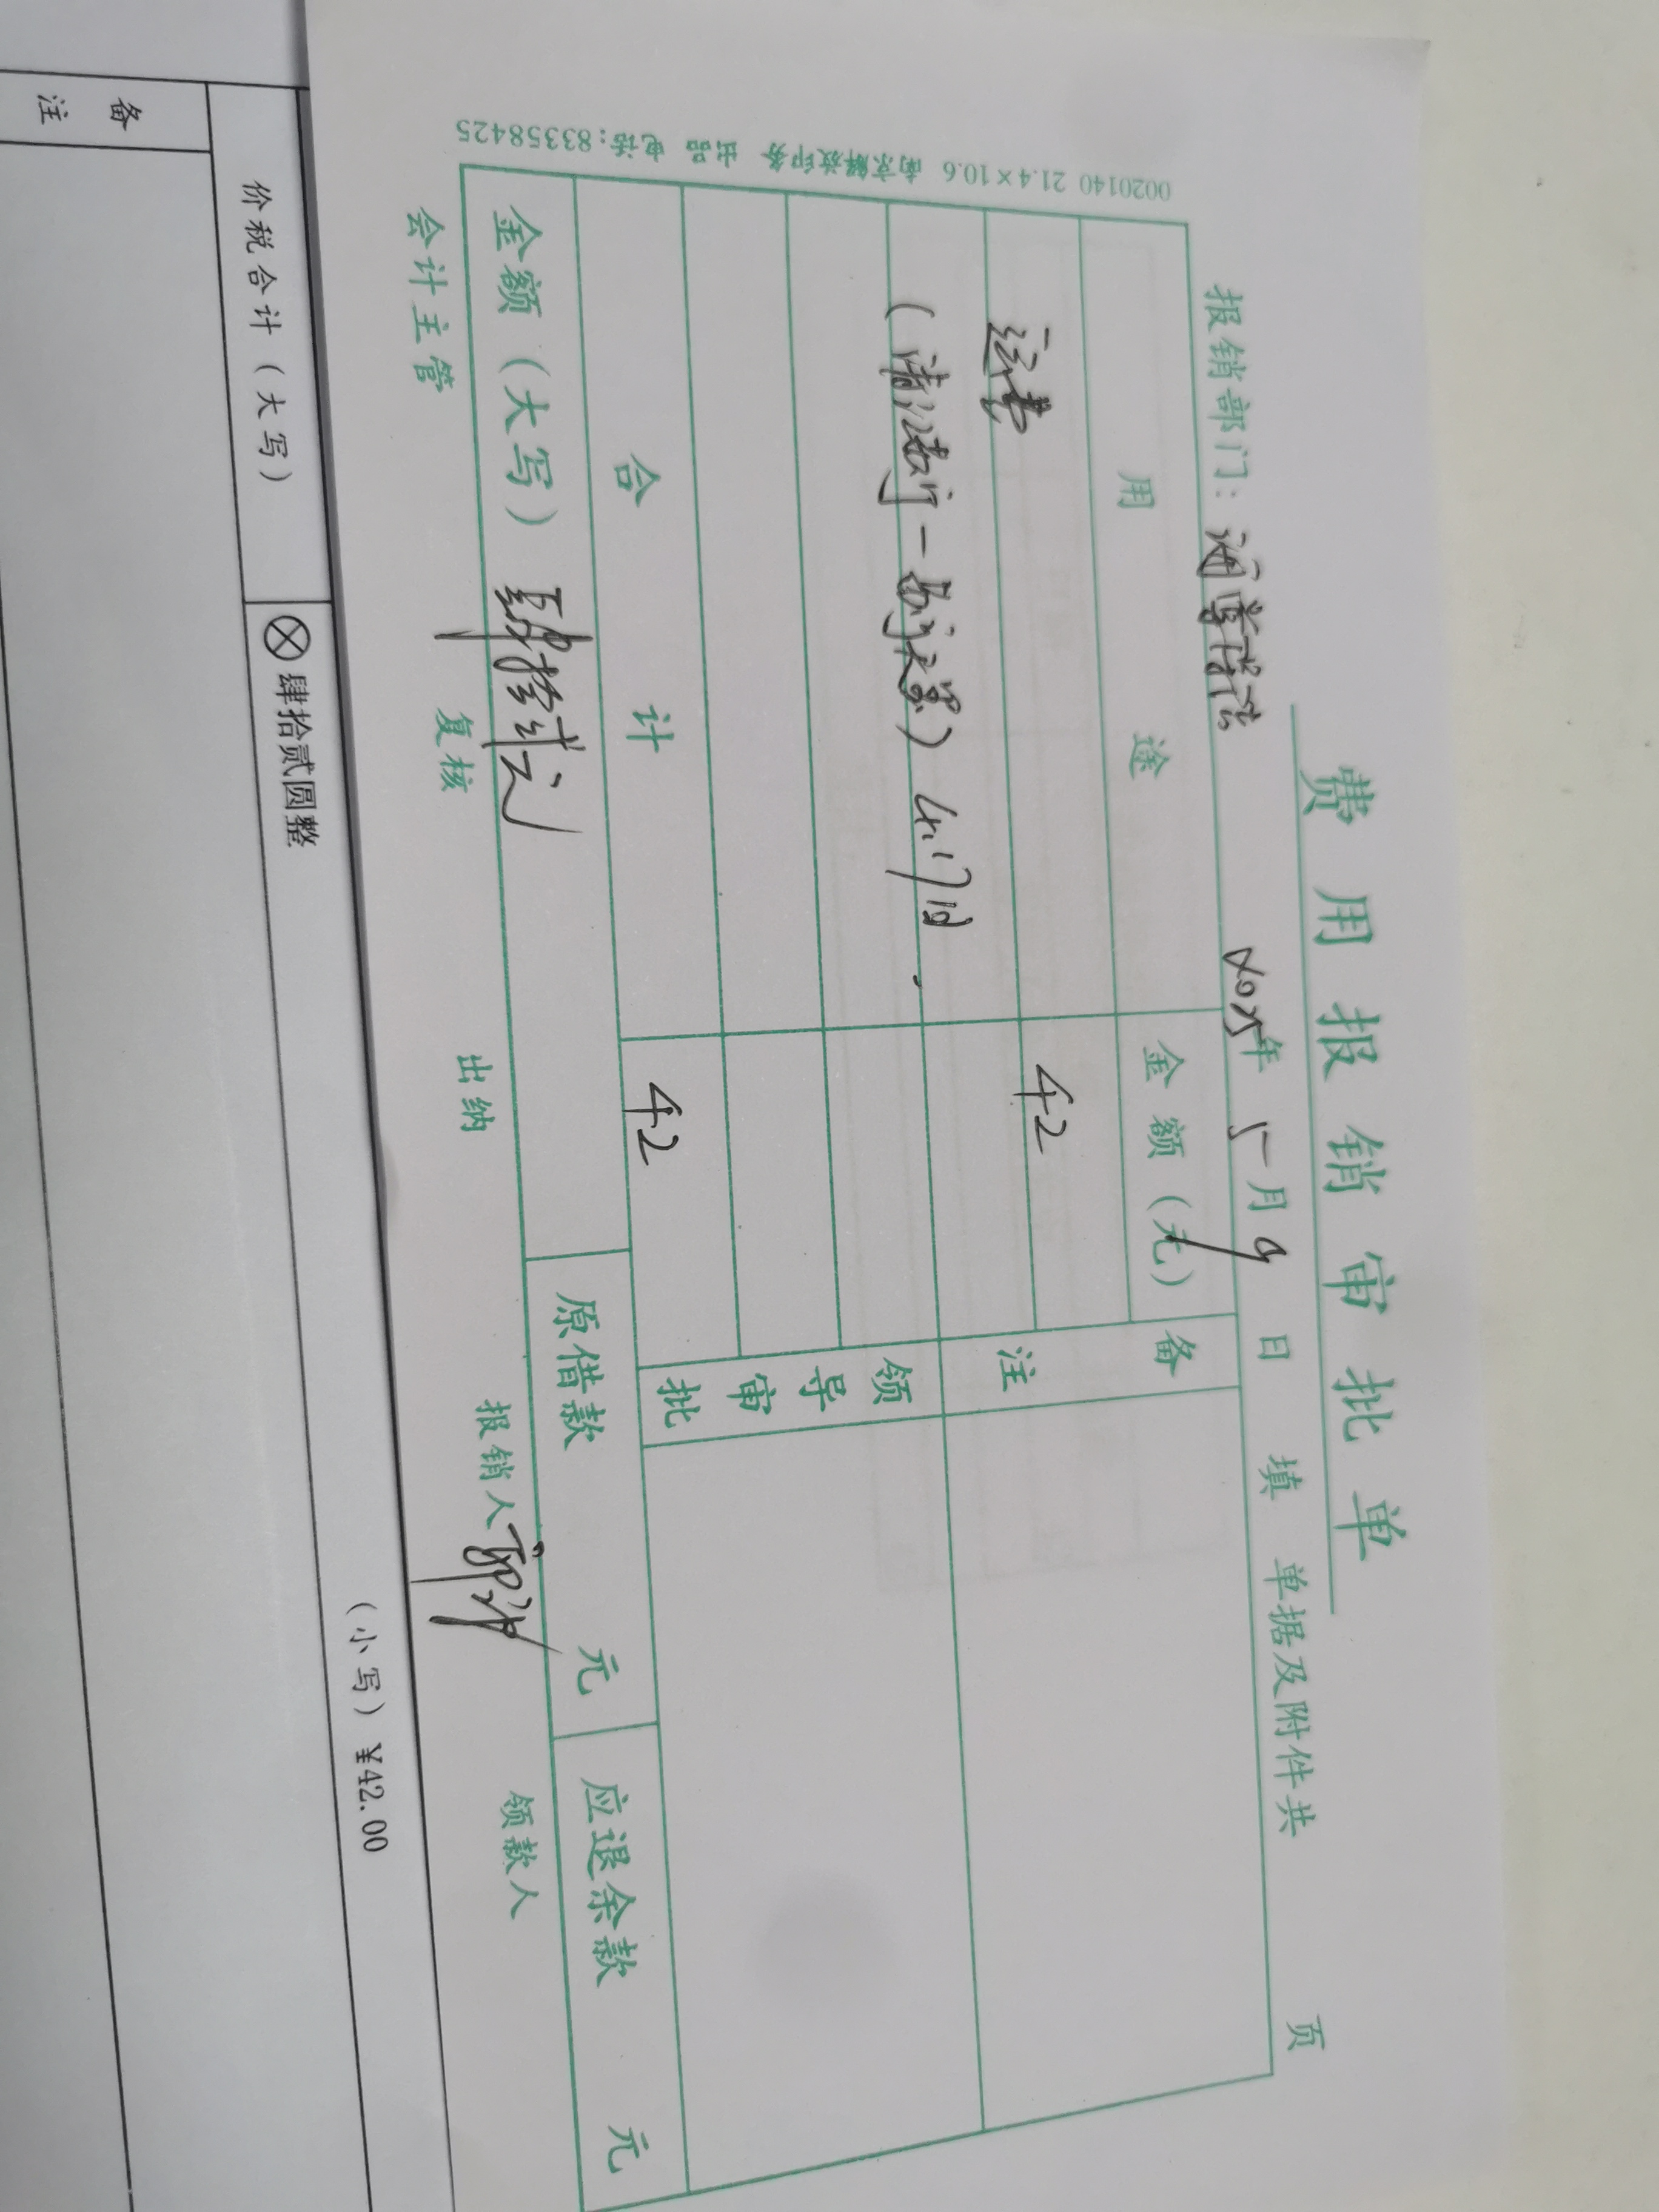 费用报销审批单
报销部门：
2025年 5月 9日 填 单据及附件共 页
用途 金额（元） 备注
运费 42
（ 一 ）4.17日.
领导审批
合计 42
金额（大写）肆拾贰元 原借款 元 应退余款 元
会计主管 复核 出纳 报销人 领款人
0020140 21.4×10.6 南京解放印务 出品 电话:83358425
价税合计（大写） ⊗肆拾贰圆整 （小写）¥42.00
备注